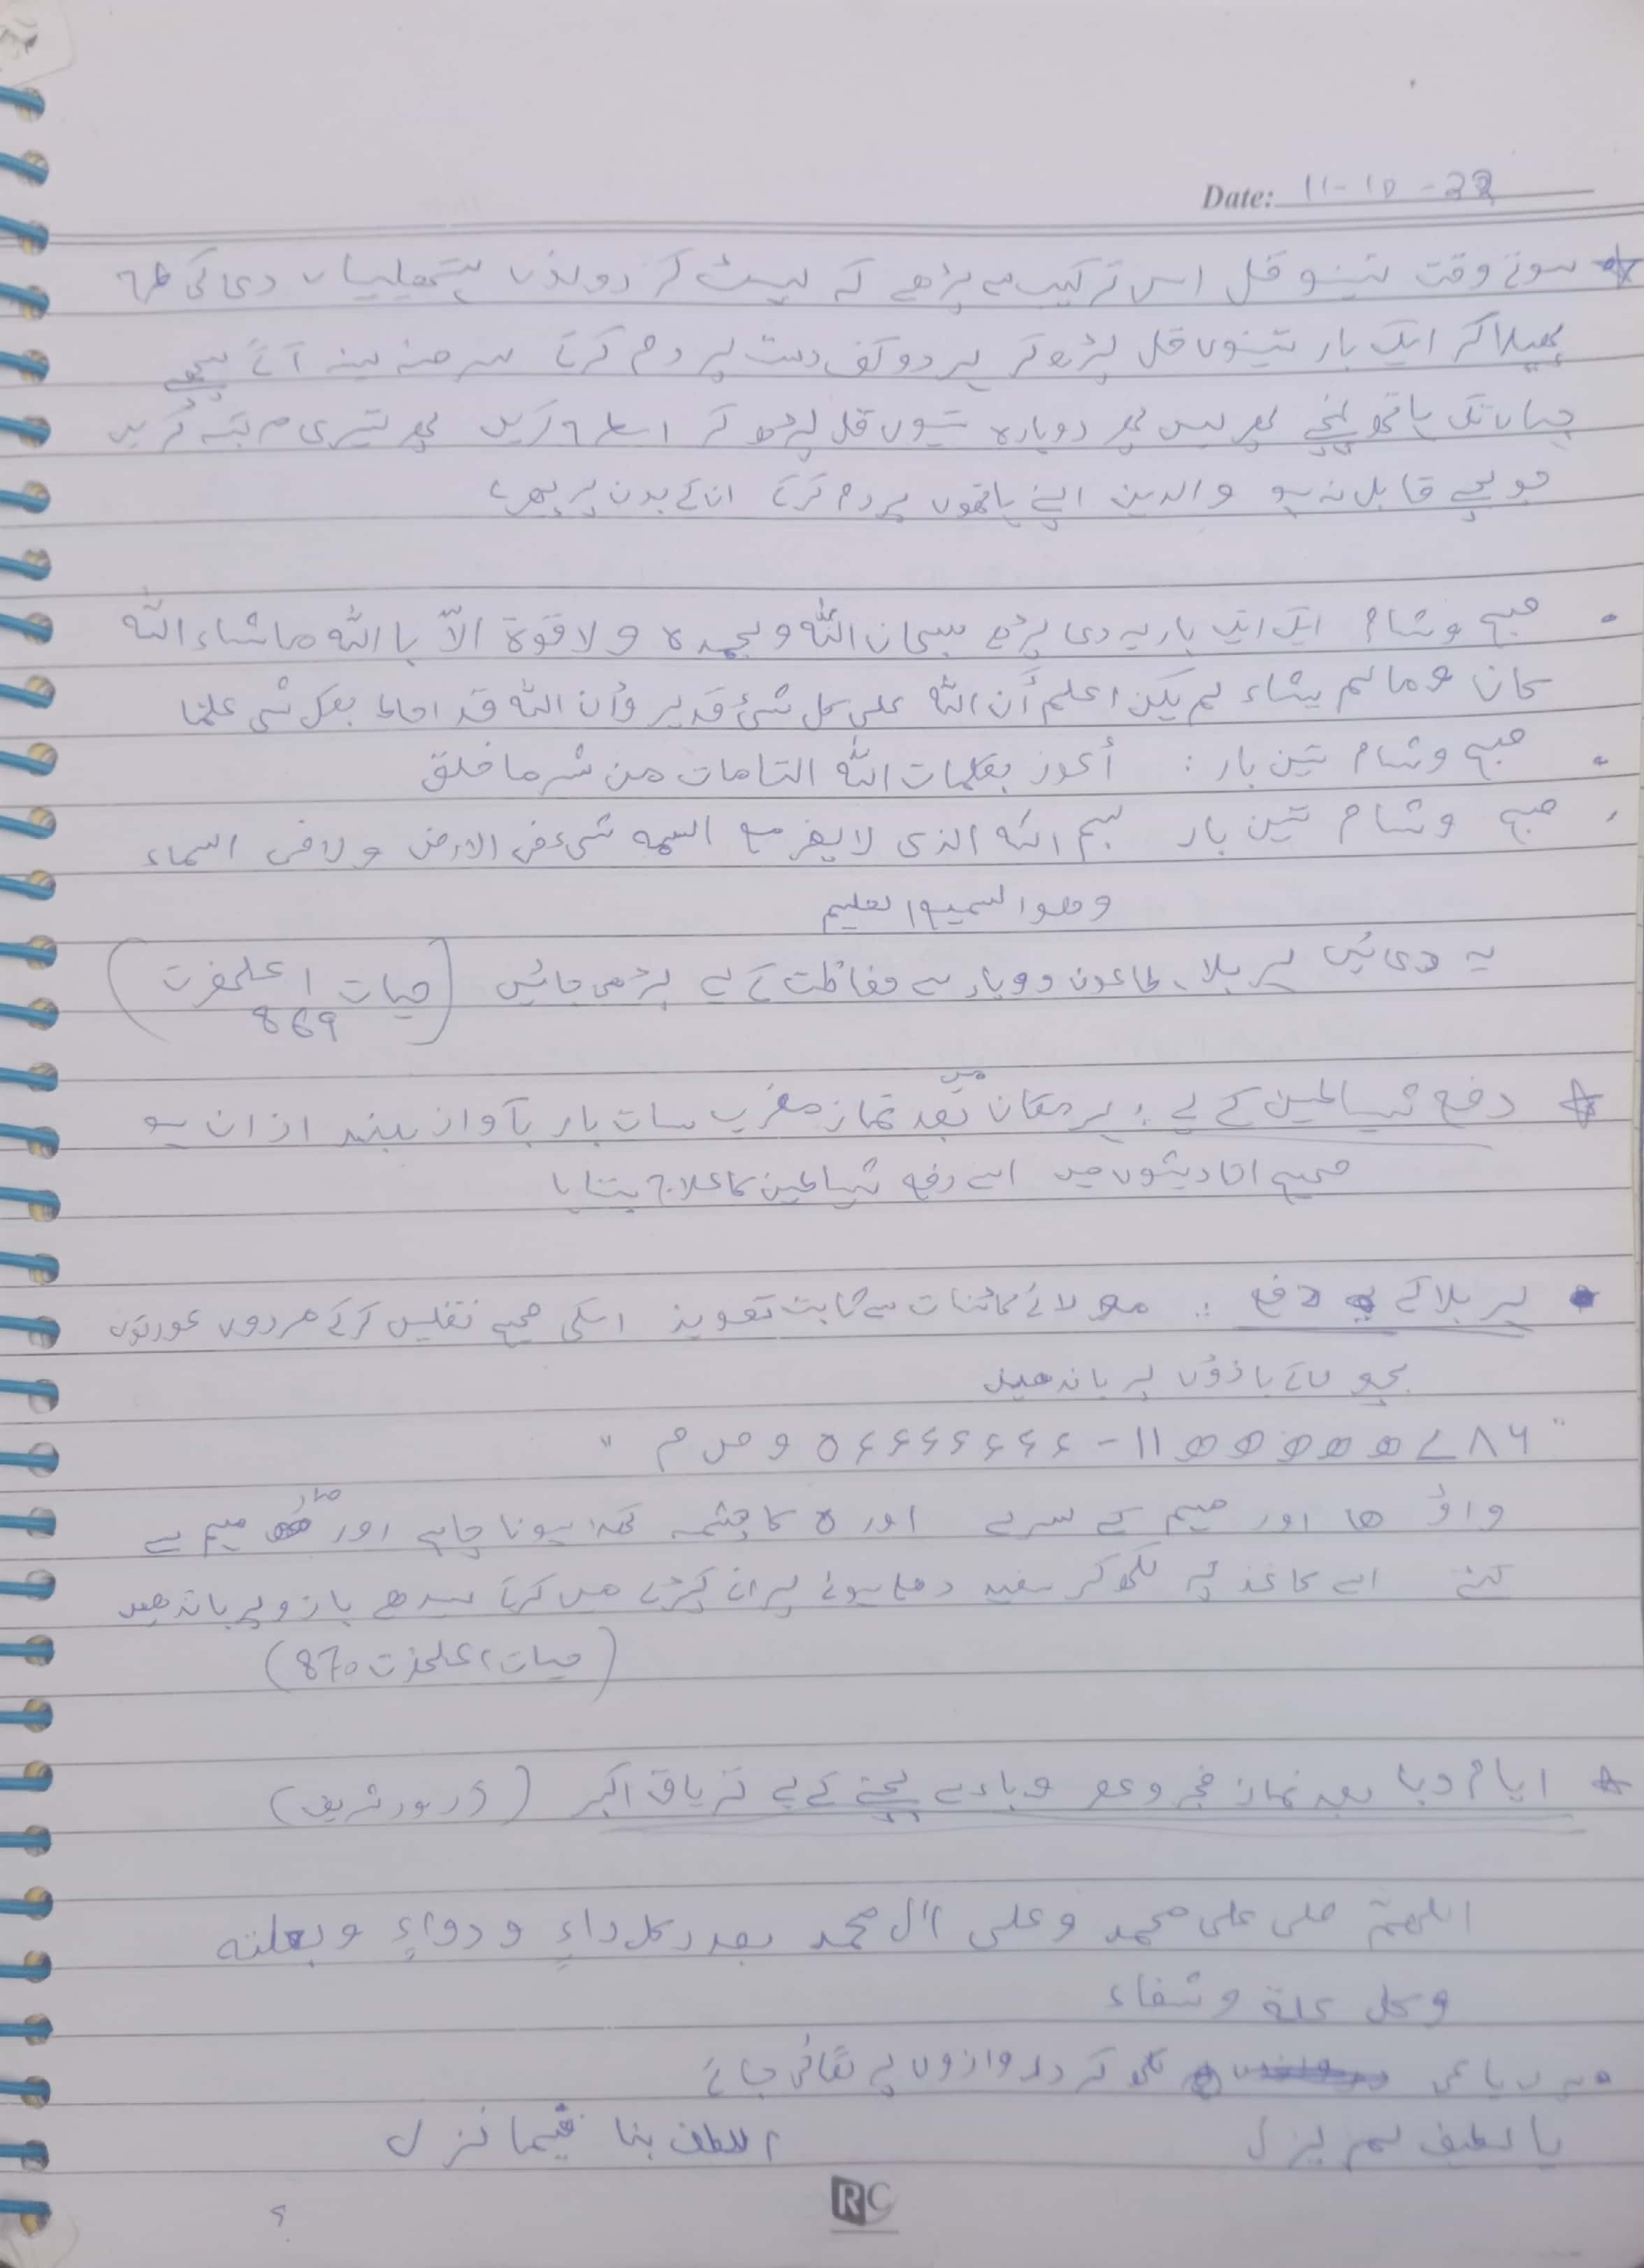 Date: 11-10-22
سوتے وقت تینو قل اس ترکیب سے پڑھے کہ لیٹ کر دونوں ہتھیلیاں دعا کی طرح
پھیلا کر ایک بار تینوں قل پڑھ کر ہر دو کف دست پر دم کرکے سر منہ سینہ آگے پیچھے
جہاں تک ہاتھ پہنچے پھر یس پھر دوبارہ تینوں قل پڑھ کر اسطرح کریں پھر تیسری مرتبہ کریں
جو بچے قابل نہ ہو والدین اپنے ہاتھوں پر دم کرکے ان کے بدن پر پھیرے
صبح و شام ایک ایک بار یہ دعا پڑھے سبحان اللہ وبحمدہ ولا قوۃ الّا با اللہ ماشاء اللہ
کان وما لم یشاء لم یکن اعلم أن اللہ علی کل شیٔ قدیر وأن اللہ قد احاط بکل شی علما
صبح و شام تین بار : أعوذ بکلمات اللہ التامات من شر ما خلق
صبح و شام تین بار بسم اللہ الذی لا یضر مع اسمہ شیء فی الارض ولا فی السماء
وھوا السمیع العلیم
یہ دعائیں ہر بلا، طاعون و وباء سے حفاظت کے لیے پڑھی جائیں (حیات اعلحضرت
869)
دفع شیاطین کے لیے : ہر مکان میں بعد نماز مغرب سات بار بآواز بلند اذان ہو
صحیح احادیثوں میں اسے دفع شیاطین کا علاج بتایا
ہر بلا کے دفع : مولائے کائنات سے ثابت تعویذ اسکی صحیح نقلیں کرکے مردوں عورتوں
بچوں کے بازوں پر باندھیں
" ۷۸۶ ھ ھ ھ ھ ھ ۱۱ - ء ء ء ء ء ء ء ہ و ص م "
واؤ ھا اور میم کے سرے اور ہ کا چشمہ کھلا ہونا چاہیے اور میم سے
کٹے اسے کاغذ پر لکھ کر سفید دھلے ہوئے پرانے کپڑے میں کرکے سیدھے بازو پر باندھیں
(حیات اعلحضرت 870)
ایام وبا بعد نماز فجر و عصر وباء سے بچنے کے لیے تریاق اکبر (درود شریف)
اللھمّ صلی علی محمد وعلی اٰل محمد بعدد کل داءٍ و دواءٍ وبعلتہ
وکل علة وشفاء
لکھ کر دروازوں پے لگائی جائے
یا لطیف لم یزل الطف بنا فیما نزل
RC